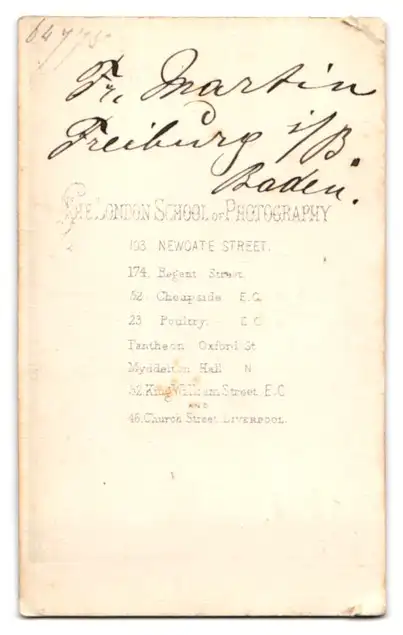 Fr. Martin
Freiburg i/B.
Baden.
THE LONDON SCHOOL OF PHOTOGRAPHY
103 NEWGATE STREET.
174. Regent Street
52 Cheapside E.C.
23 Poultry. E.C.
Pantheon Oxford St
Myddelton Hall N
52 King William Street E.C
AND
46. Church Street LIVERPOOL.